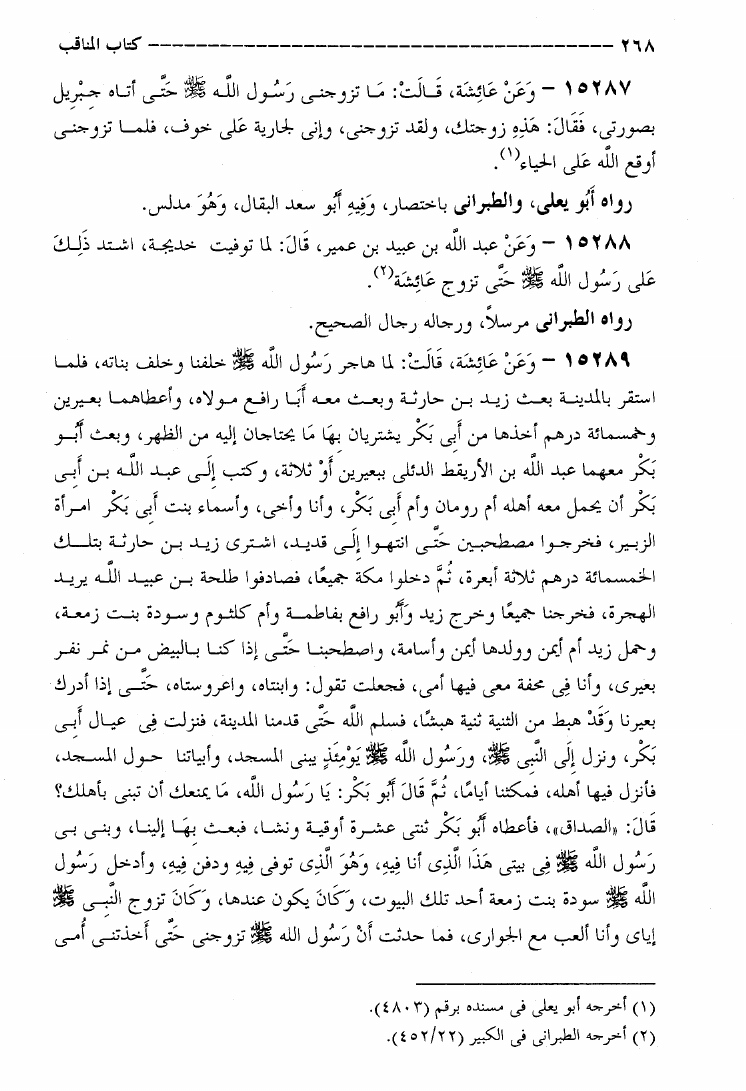 ٢٦٨ ــــــــــــــــــــــــــــــــــــــــــــــــ كتاب المناقب
١٥٢٨٧ – وَعَنْ عَائِشَة، قَـالَتْ: مَـا تزوجنـى رَسُـول اللَّـه ﷺ حَتَّـى أتـاه جـبْريل
بصورتى، فَقَالَ: هَذِهِ زوجتك، ولقد تزوجنى، وإنى لجارية عَلى خوف، فلمـا تزوجنـى
أوقع اللَّه عَلى الحياء(١).
رواه أَبُو يعلى، والطبرانى باختصار، وَفِيهِ أَبُو سعد البقال، وَهُوَ مدلس.
١٥٢٨٨ – وَعَنْ عبد اللَّه بن عبيد بن عمير، قَالَ: لما توفيت خديجـة، اشـتد ذَلِـكَ
عَلى رَسُول اللَّه ﷺ حَتَّى تزوج عَائِشَة(٢).
رواه الطبرانى مرسلاً، ورجاله رجال الصحيح.
١٥٢٨٩ – وَعَنْ عَائِشَة، قَالَتْ: لما هاجر رَسُول اللَّه ﷺ خلفنا وخلف بناته، فلمـا
استقر بالمدينـة بعـث زيـد بـن حارثـة وبعـث معـه أَبَـا رافـع مـولاه، وأعطاهمـا بعـيرين
وخمسمائة درهم أخذها من أَبِى بَكْر يشتريان بِهَا مَا يحتاجان إليه من الظهر، وبعث أَبُـو
بَكْر معهما عبد اللَّه بن الأريقط الدئلى ببعيرين أَوْ ثلاثة، وكتب إِلَـى عبـد اللَّـه بـن أَبِـى
بَكْر أن يحمل معه أهله أم رومان وأم أَبِى بَكْر، وأنا وأخى، وأسماء بنت أَبِى بَكْر امـرأة
الزبـير، فخرجـوا مصطحبـين حَتَّـى انتهـوا إِلَى قديـد، اشـترى زيـد بـن حارثـة بتلـك
الخمسمائة درهم ثلاثة أبعرة، ثُمَّ دخلوا مكة جميعًا، فصادفوا طلحة بـن عبيـد اللَّـه يريـد
الهجرة، فخرجنا جميعًا وخرج زيد وَأَبُو رافع بفاطمـة وأم كلثـوم وسـودة بنـت زمعـة،
وحمل زيد أم أيمن وولدها أيمن وأسامة، واصطحبنـا حَتَّـى إذا كنـا بـالبيض مـن نمـر نفـر
بعيرى، وأنا فِى محفة معى فيها أمى، فجعلت تقول: وابنتاه، واعروستاه، حَتَّـى إذا أدرك
بعيرنا وَقَدْ هبط من الثنية ثنية هبشًا، فسلم اللَّه حَتَّى قدمنا المدينة، فنزلت فِى عيـال أَبِـى
بَكْر، ونزل إِلَى النَّبِى ﷺ، ورَسُول اللَّه ﷺ يَوْمَئِذٍ يبنى المسجد، وأبياتنا حـول المسـجد،
فأنزل فيها أهله، فمكثنا أيامًا، ثُمَّ قَالَ أَبُو بَكْر: يَا رَسُول اللَّه، مَا يمنعك أن تبنى بأهلك؟
قَالَ: «الصداق»، فأعطاه أَبُو بَكْر ثنتى عشـرة أوقيـة ونشـا، فبعـث بِهَـا إلينـا، وبنـى بـى
رَسُول اللَّه ﷺ فِى بيتى هَذَا الَّذِى أنا فِيهِ، وَهُوَ الَّذِى توفى فِيهِ ودفن فِيهِ، وأدخل رَسُول
اللَّه ﷺ سودة بنت زمعة أحد تلك البيوت، وَكَانَ يكون عندها، وَكَانَ تزوج النَّبِـى ﷺ
إياى وأنا ألعب مع الجوارى، فما حدثت أَنْ رَسُول الله ﷺ تزوجنى حَتَّى أخذتنـى أُمـى
(١) أخرجه أبو يعلى فى مسنده برقم (٤٨٠٣).
(٢) أخرجه الطبرانى فى الكبير (٤٥٢/٢٢).